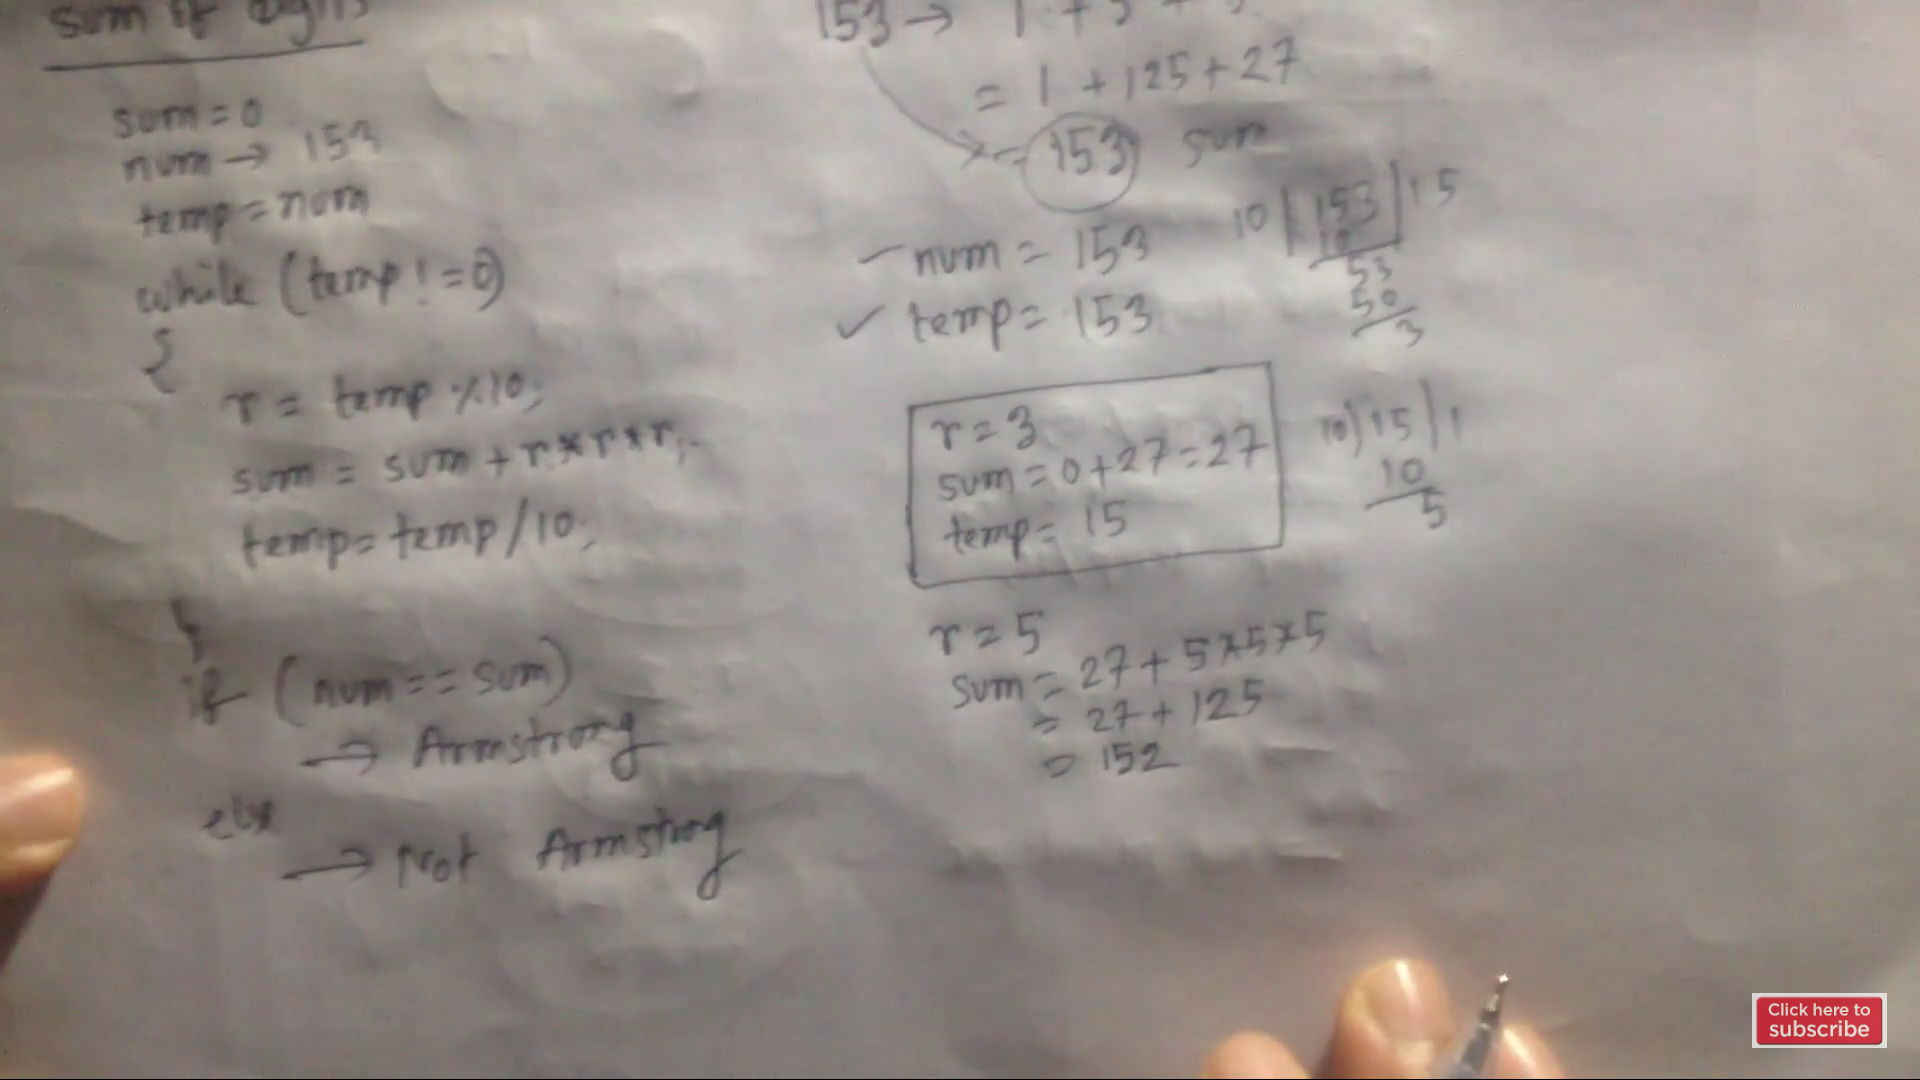 sum of Digits
sum=0
num → 153
temp=num
while (temp!=0)
{
r = temp %10;
sum = sum + r*r*r;
temp= temp/10;
}
if (num==sum)
→ Armstrong
else
→ Not Armstrong
153 → 1 + 5 + 3
= 1 + 125 + 27
= 153 sum
num = 153
✓ temp= 153
10 | 153 | 15
10
53
50
3
r = 3
sum = 0+27=27
temp= 15
10) 15 | 1
10
5
r = 5
sum = 27+ 5*5*5
= 27+ 125
= 152
Click here to
subscribe